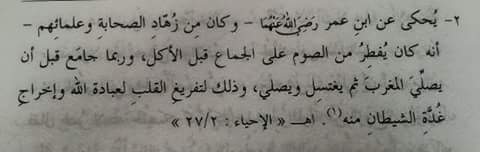 ٢- يُحكى عن ابنِ عمر رَضِيَ اللهُ عَنْهُمَا – وكان مِن زُهّادِ الصحابةِ وعلمائِهم –
أنه كان يُفطِرُ من الصومِ على الجماعِ قبل الأكلِ، وربما جامَع قبل أن
يصلِّيَ المغربَ ثم يغتسِلُ ويصلي، وذلك لتفريغِ القلبِ لعبادةِ الله وإخراجِ
غُدَّةِ الشيطانِ منه(١). اهـ « الإحياء : ٢٧/٢ »